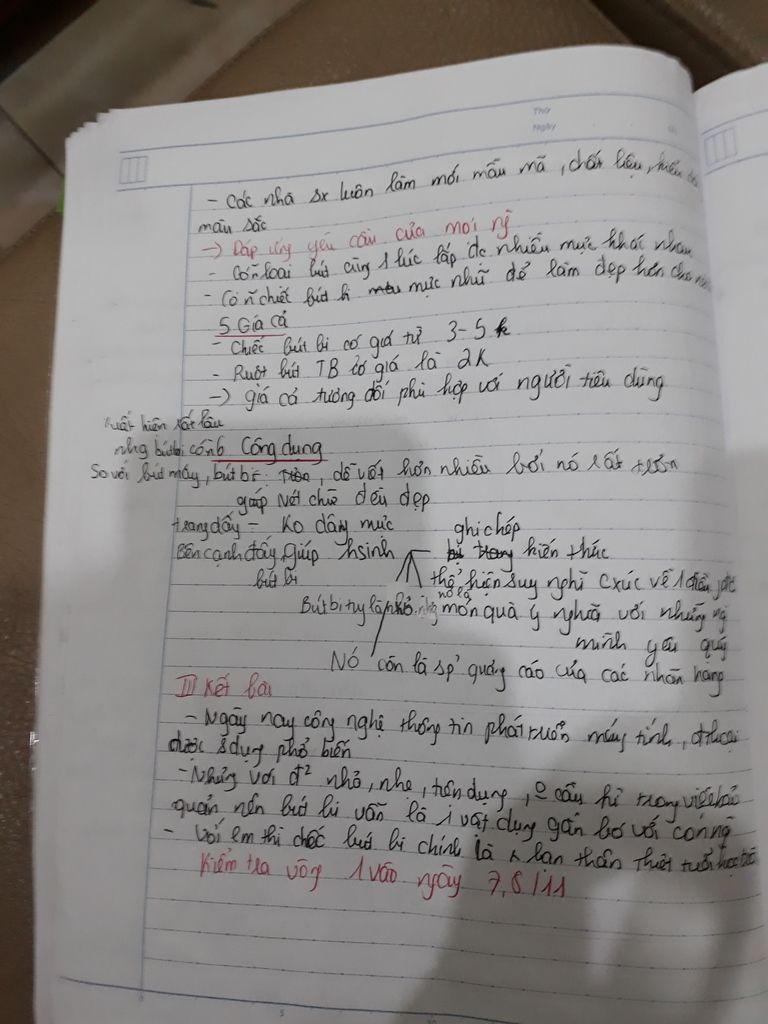 Thứ
Ngày
- Các nhà sx luôn làm mới mẫu mã, chất liệu,
màu sắc
-> Đáp ứng yêu cầu của mọi ng
- Còn loại bút cùng 1 lúc lắp đc nhiều mực khác nhau
- Có n chiếc bút bi mực nhũ để làm đẹp hơn cho
5 Giá cả
- Chiếc bút bi có giá từ 3-5 k
- Ruột bút TB có giá là 2K
-> giá cả tương đối phù hợp với người tiêu dùng
xuất hiện rất lâu
nhg bút bi có n 6 Công dụng
So với bút máy, bút bi trơn, dễ viết hơn nhiều bởi nó rất trơn
giúp nét chữ đều đẹp
trang giấy - Ko dây mực ghi chép
Bên cạnh đấy giúp hsinh kiến thức
bút bi thể hiện suy nghĩ cxúc về 1 điều
Bút bi tuy là nhỏ nhg nó là món quà ý nghĩa với những ng
mình yêu quý
Nó còn là sp' quảng cáo của các nhãn hàng
III Kết bài
- Ngày nay công nghệ thông tin phát triển máy tính, đthoại
được sdụng phổ biến
- Nhưng với đ² nhỏ, nhẹ, tiện dụng, cầu kì trong việc bảo
quản nên bút bi vẫn là 1 vật dụng gắn bó với con ng
- Với em thì chiếc bút bi chính là bạn thân thiết tuổi học trò
Kiểm tra vòng 1 vào ngày 7,8/11